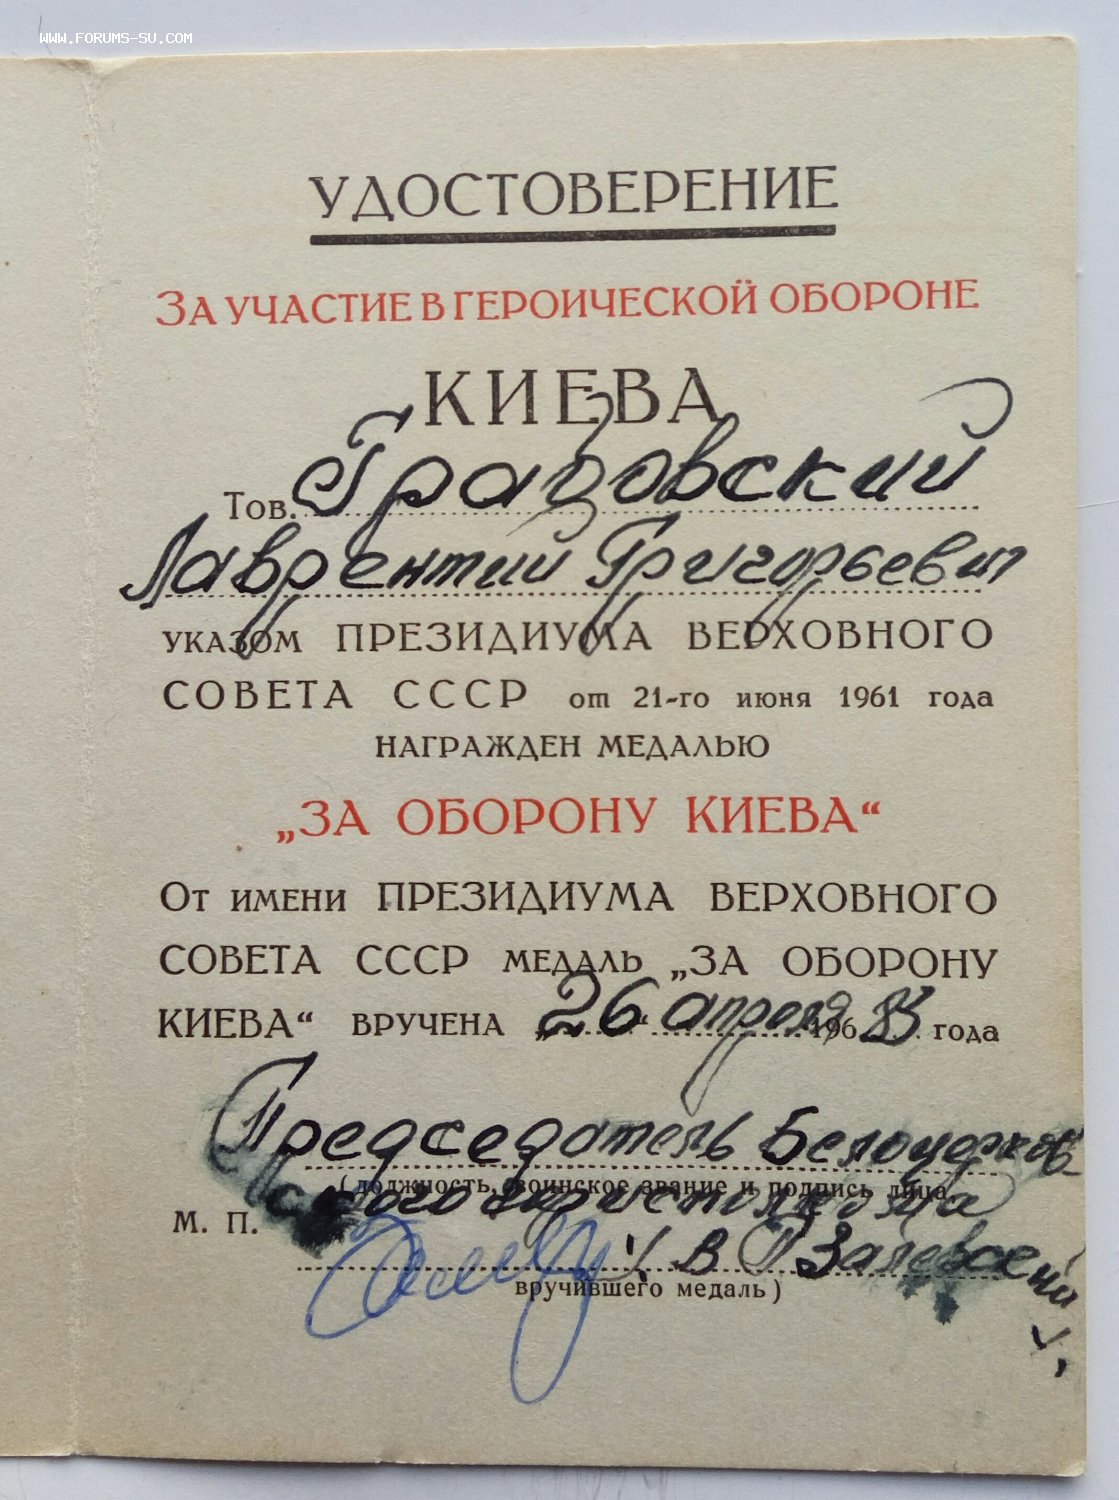 WWW.FORUMS-SU.COM
УДОСТОВЕРЕНИЕ
ЗА УЧАСТИЕ В ГЕРОИЧЕСКОЙ ОБОРОНЕ
КИЕВА
Тов. Градовский
Лаврентий Григорьевич
УКАЗОМ ПРЕЗИДИУМА ВЕРХОВНОГО
СОВЕТА СССР от 21-го июня 1961 года
НАГРАЖДЕН МЕДАЛЬЮ
„ЗА ОБОРОНУ КИЕВА“
От имени ПРЕЗИДИУМА ВЕРХОВНОГО
СОВЕТА СССР МЕДАЛЬ „ЗА ОБОРОНУ
КИЕВА“ ВРУЧЕНА „26“ апреля 196 года
Председатель Белоцерков
(должность, воинское звание и подпись лица,
ского горисполкома
М. П.
В П Залевский
вручившего медаль)